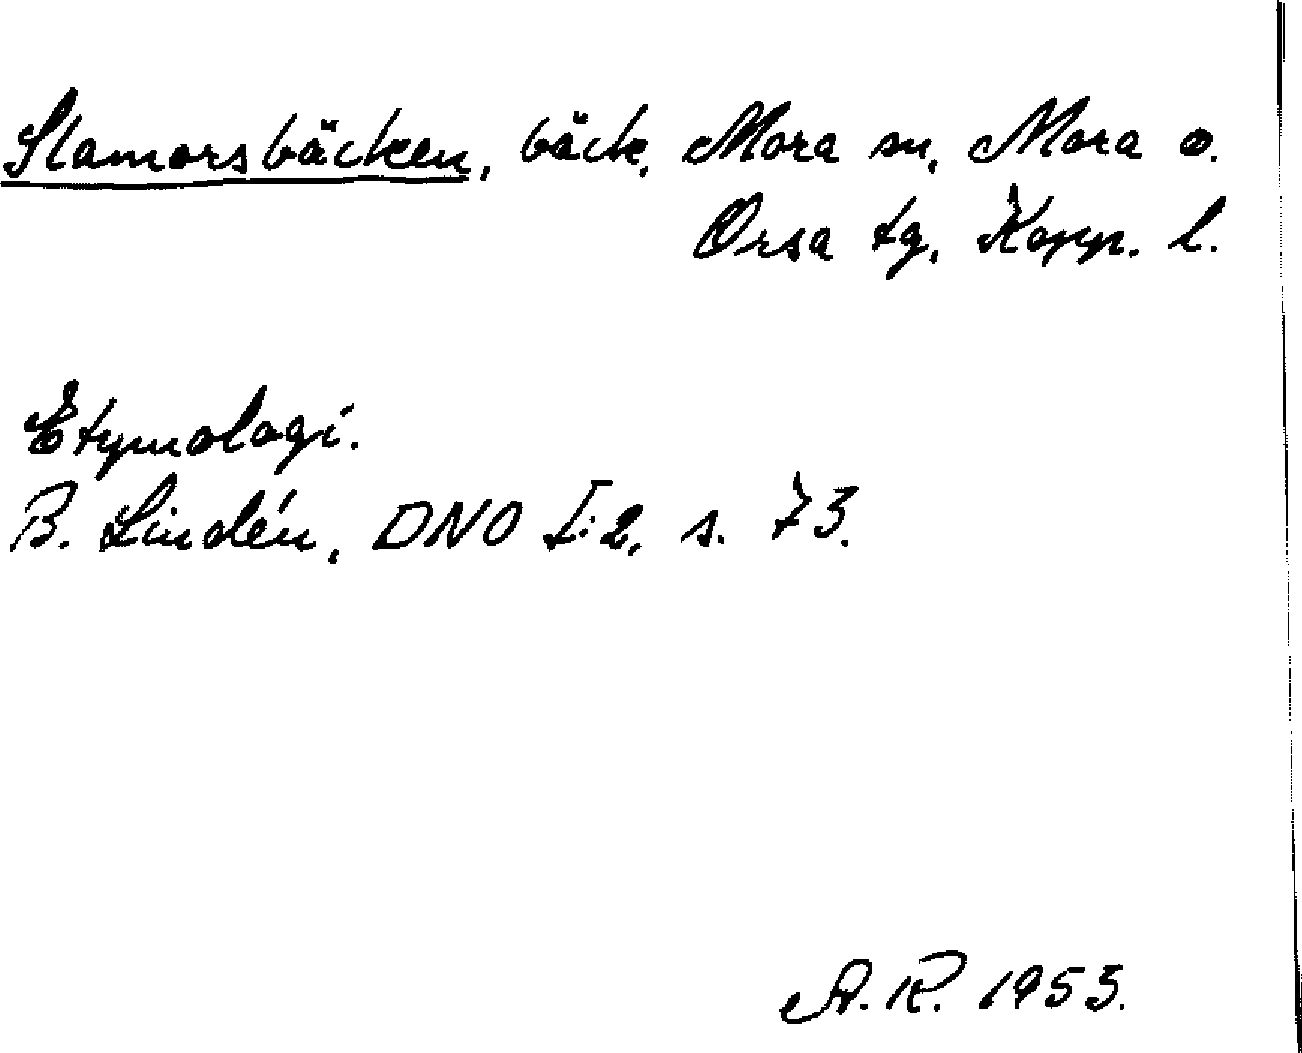 Slamorsbäcken, bäck, Mora sn, Mora o.
Orsa tg, Kopp. l.
Etymologi.
B. Lindén, DNO I:2, s. 73.
A. R. 1953.